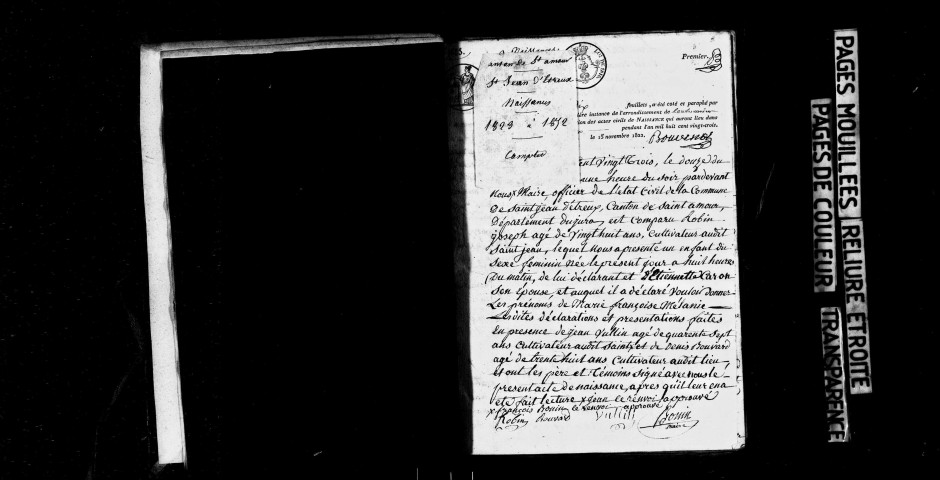 Naissances
canton de St amour
St Jean D'Etreux
Naissances
1823 à 1872
Complet
Premier
feuillets, a été coté et paraphé par
instance de l'arrondissement de
des actes civils de NAISSANCE qui auront lieu dans
pendant l'an mil huit cent vingt-trois.
le 15 novembre 1822.
cent Vingt Trois, le douze du
une heure du Soir pardevant
Nous x Maire, officier de l'état Civil de la Commune
De Saint jean d'étreux, Canton de Saint amour,
Département du jura, est comparu Robin
joseph agé de Vingt huit ans, cultivateur audit
Saint jean, lequel Nous a presenté un enfant du
Sexe féminin Née le present jour a huit heures
Du matin, de lui déclarant et d'Etiennette Caron
Son Epouse, et auquel il a déclaré Vouloir donner
Les prénoms de Marie françoise Mélanie
Lesdites déclarations et présentations faites
En presence de jean Vullin agé de quarente Sept
ans Cultivateur audit Saint x et de Denis Bouvard
agé de trente huit ans Cultivateur audit lieu
et ont les père et Témoins Signé avec nous le
present acte de naissance, après qu'il leur en a
été fait lecture x jean ce renvoi approuvé
x françois Bonin ce renvoi approuvé
Robin Bouvard Vullin Bonin
maire
PAGES MOUILLEES RELIURE ETROITE
PAGES DE COULEUR TRANSPARENCE